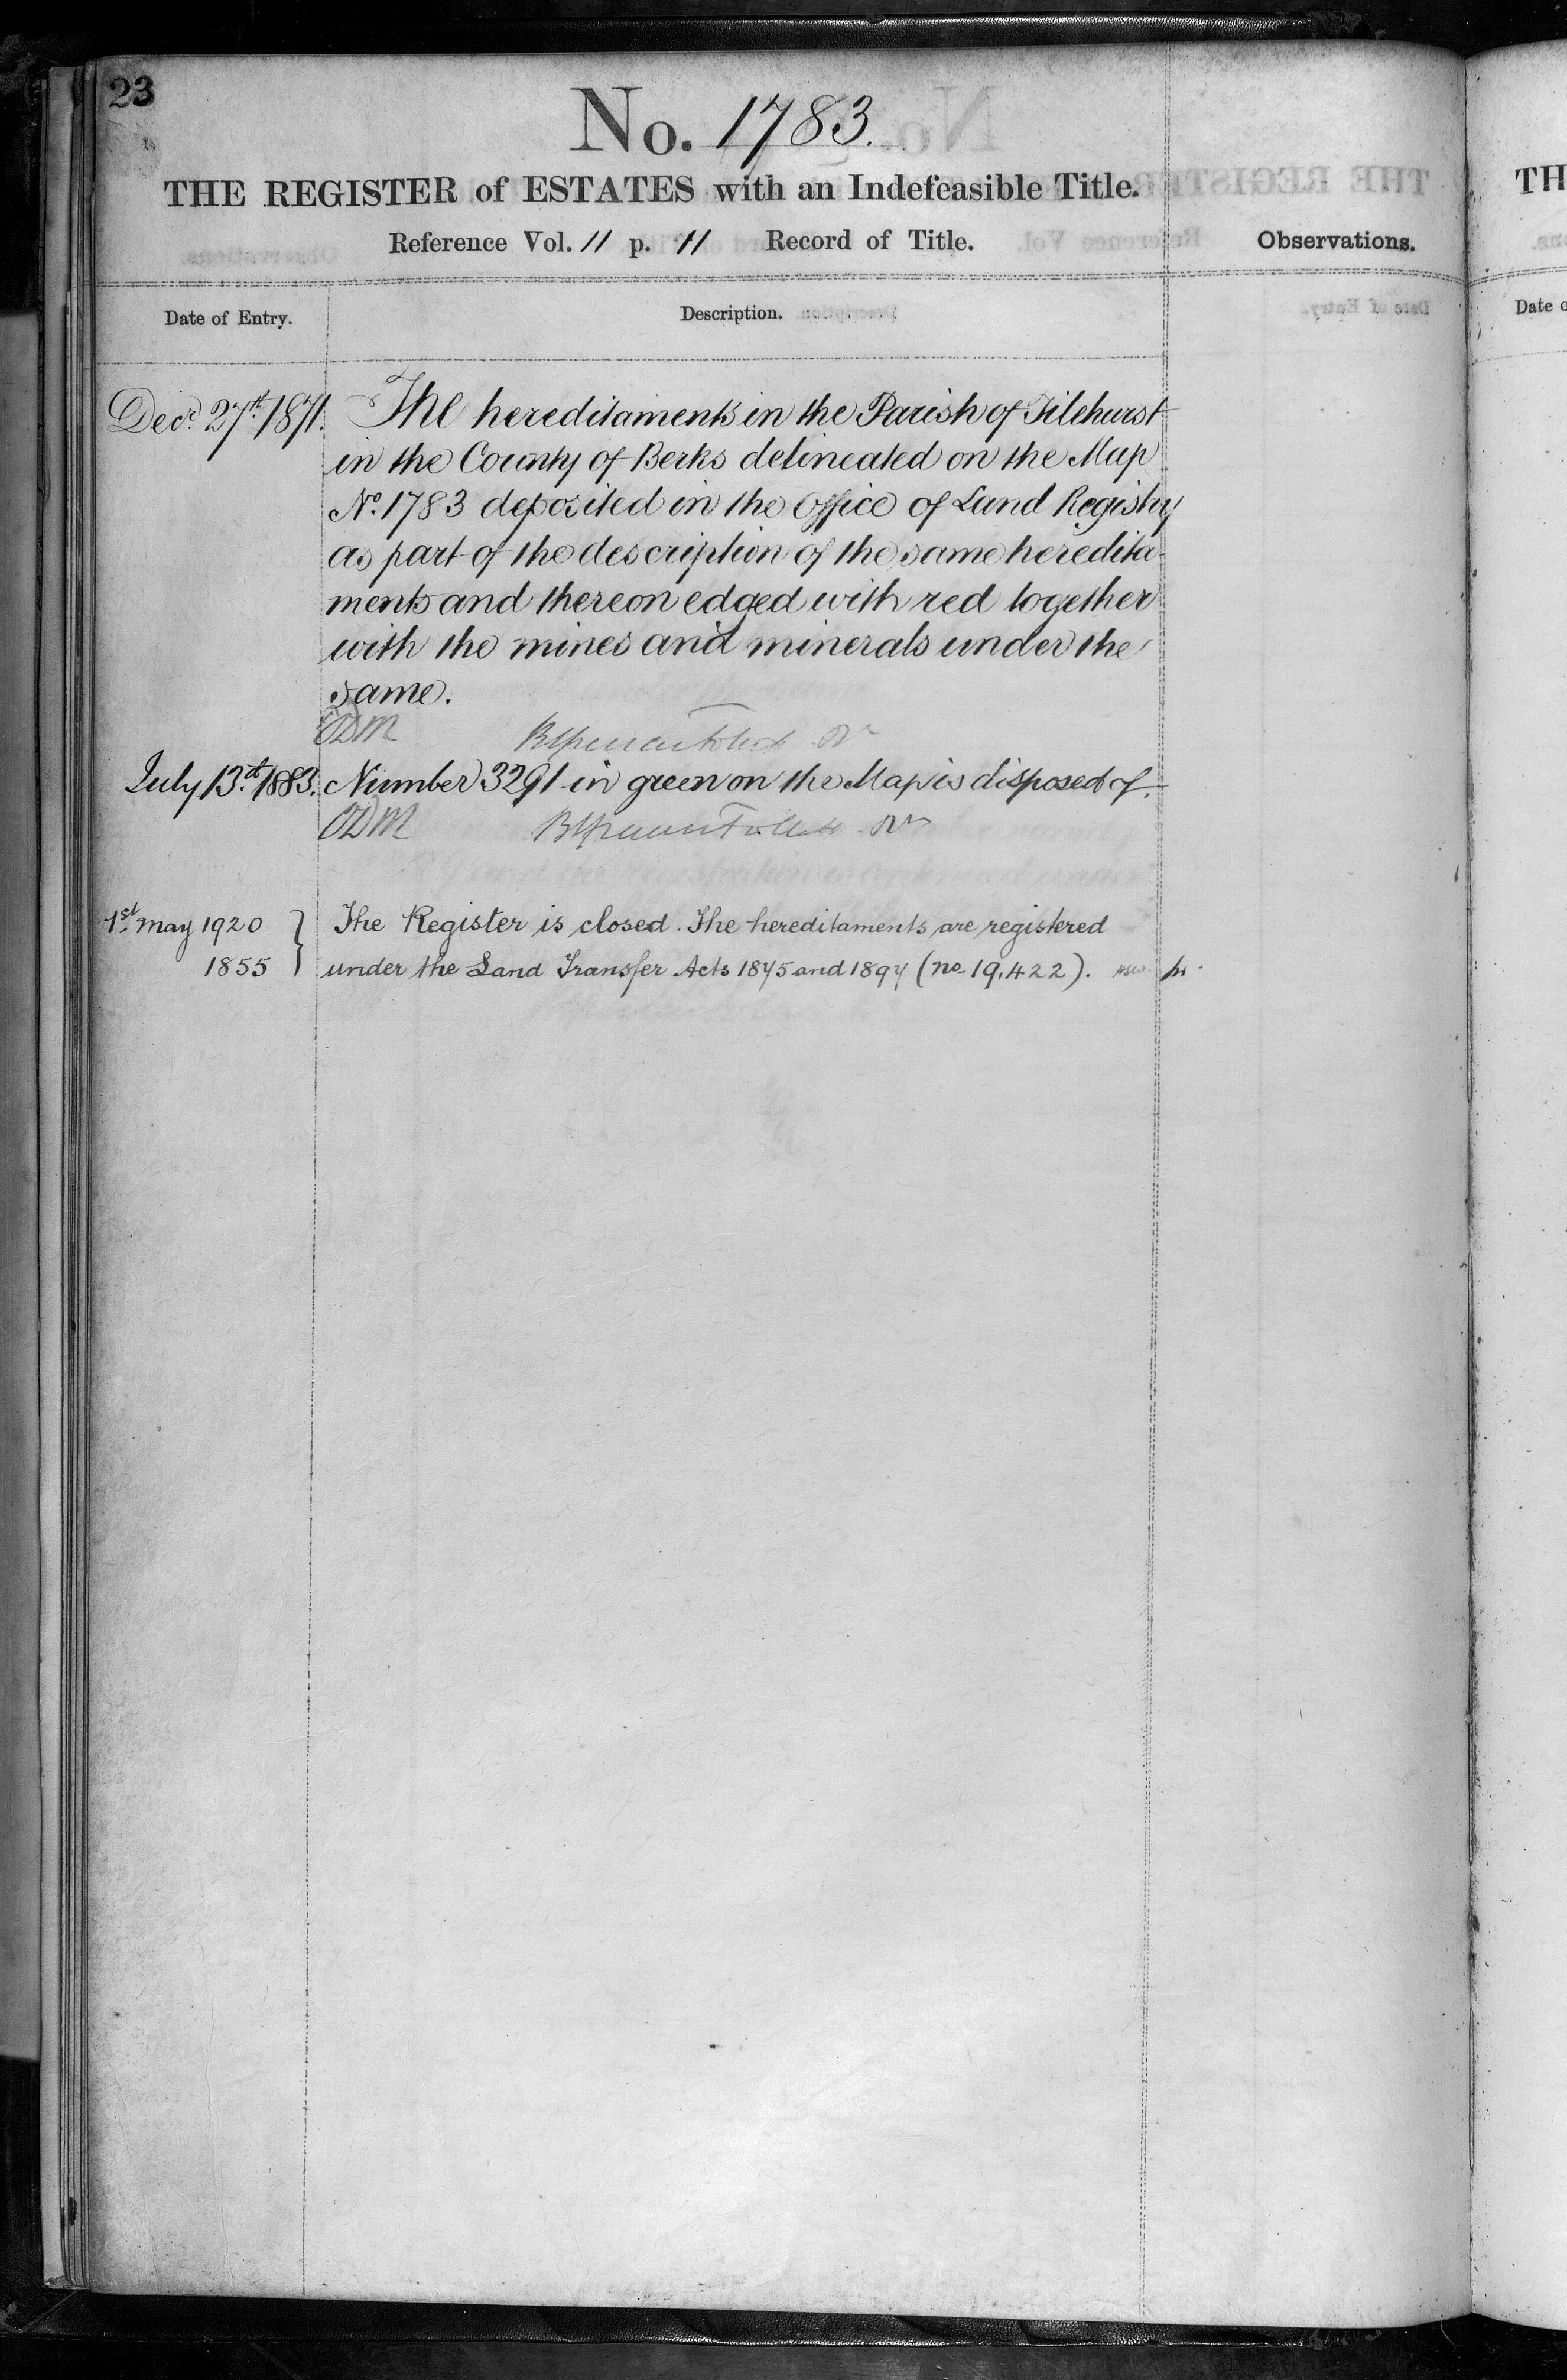 23
No. 1783.
THE REGISTER of ESTATES with an Indefeasible Title.
Reference Vol. 11 p. 11 Record of Title.
Observations.
Date of Entry.
Description.
Decr. 27th. 1871. The hereditaments in the Parish of Tilehurst
in the County of Berks delineated on the Map
No. 1783 deposited in the Office of Land Registry
as part of the description of the same heredita-
ments and thereon edged with red together
with the mines and minerals under the
same.
July 13th. 1883. Number 3291 in green on the Map is disposed of.
1st. May 1920 } The Register is closed. The hereditaments are registered
1855 } under the Land Transfer Acts 1875 and 1897 (no 19,422).
TH
Date o